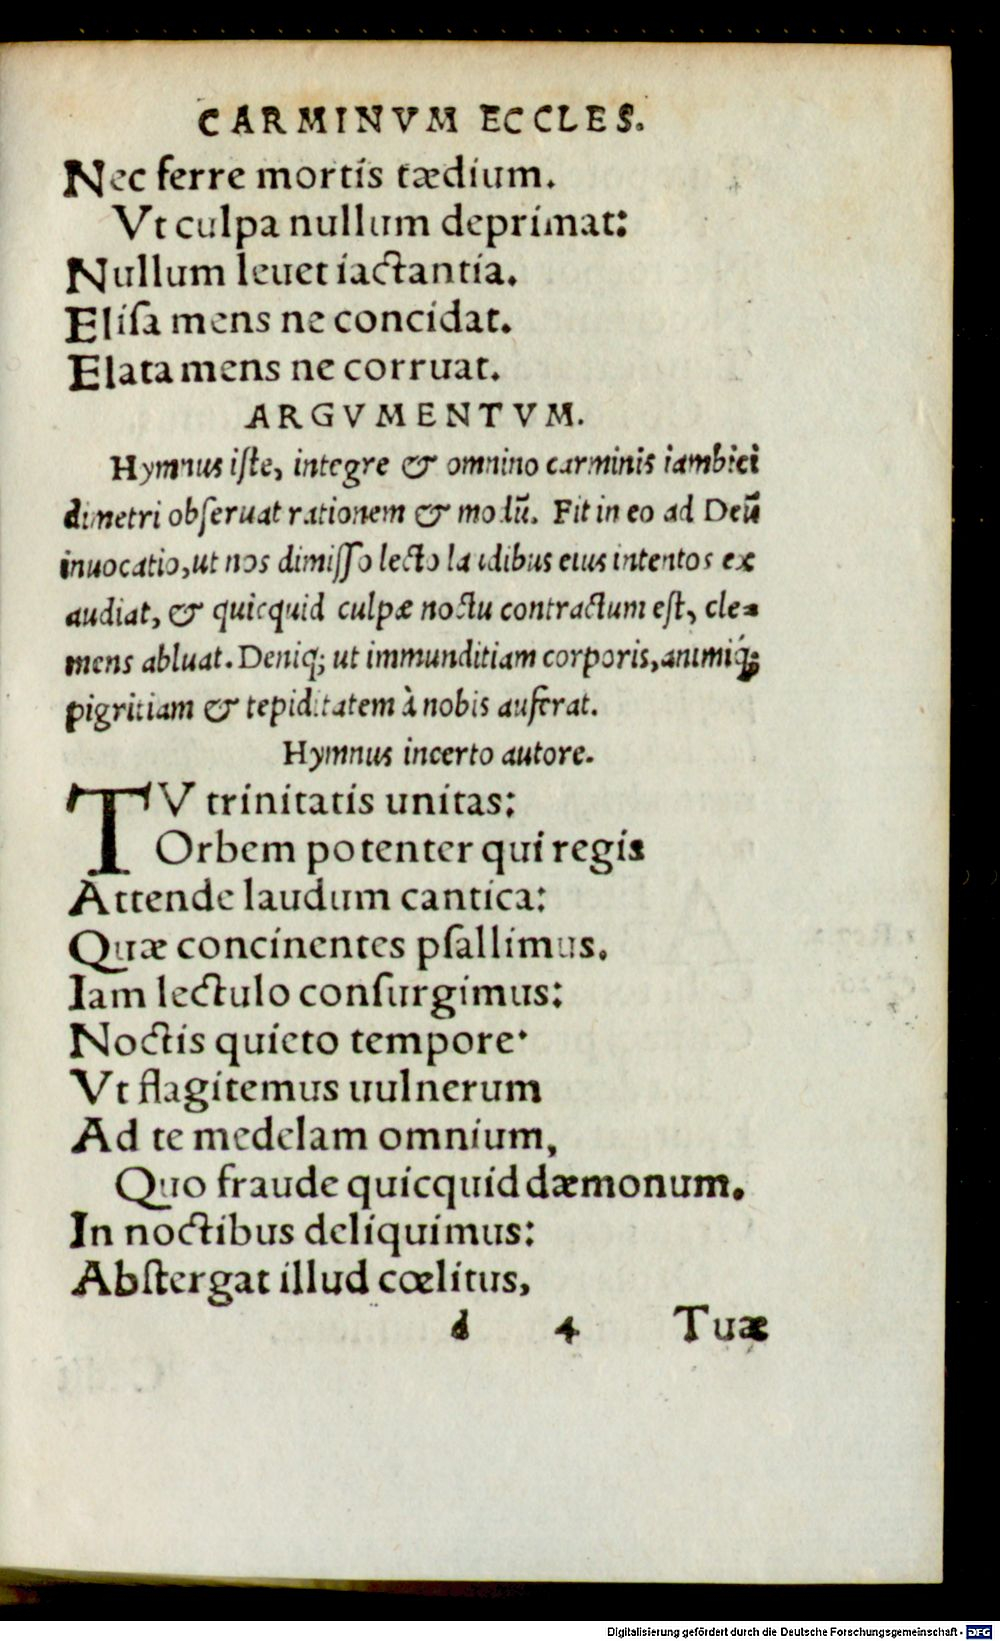 CARMINVM ECCLES.
Nec ferre mortis tædium.
Vt culpa nullum deprimat:
Nullum leuet iactantia.
Eliſa mens ne concidat.
Elata mens ne corruat.
ARGVMENTVM.
Hymnus iſte, integre & omnino carminis iambici
dimetri obſeruat rationem & modū. Fit in eo ad Deū
inuocatio, ut nos dimiſſo lecto laudibus eius intentos ex
audiat, & quicquid culpæ noctu contractum eſt, cle=
mens abluat. Deniq; ut immunditiam corporis, animiq́;
pigritiam & tepiditatem à nobis auferat.
Hymnus incerto autore.
TV trinitatis unitas:
Orbem potenter qui regis
Attende laudum cantica:
Quæ concinentes pſallimus.
Iam lectulo conſurgimus:
Noctis quieto tempore·
Vt flagitemus uulnerum
Ad te medelam omnium,
Quo fraude quicquid dæmonum.
In noctibus deliquimus:
Abſtergat illud cœlitus,
d 4 Tuæ
Digitalisierung gefördert durch die Deutsche Forschungsgemeinschaft - DFG